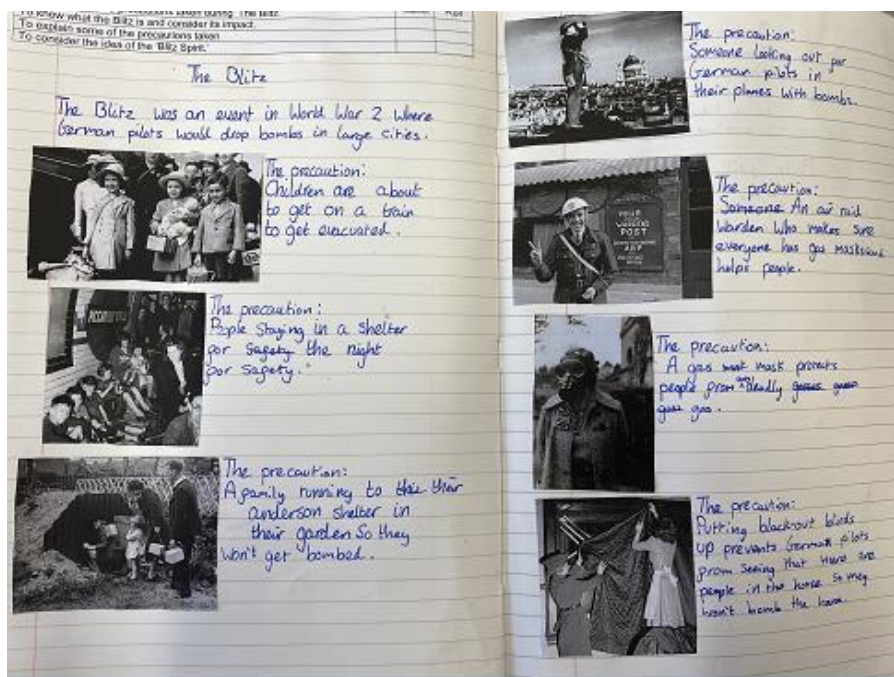 precautions taken during 'The Blitz.'
To know what the Blitz is and consider its impact.
To explain some of the precautions taken
To consider the idea of the 'Blitz Spirit.'
The Blitz
The Blitz was an event in World War 2 where
German pilots would drop bombs in large cities.
The precaution:
Children are about
to get on a train
to get evacuated.
The precaution:
People staying in a shelter
for safety the night
for safety.
The precaution:
A family running to this their
anderson shelter in
their garden so they
won't get bombed.
The precaution:
Someone looking out for
German pilots in
their planes with bombs.
The precaution:
Someone An air raid
Warden who makes sure
everyone has gas masks and
helps people.
POST
ARP
The precaution:
A gas mask protects
people from deadly
gas.
The precaution:
Putting blackout blinds
up prevents German pilots
from seeing that there are
people in the house so they
won't bomb the house.